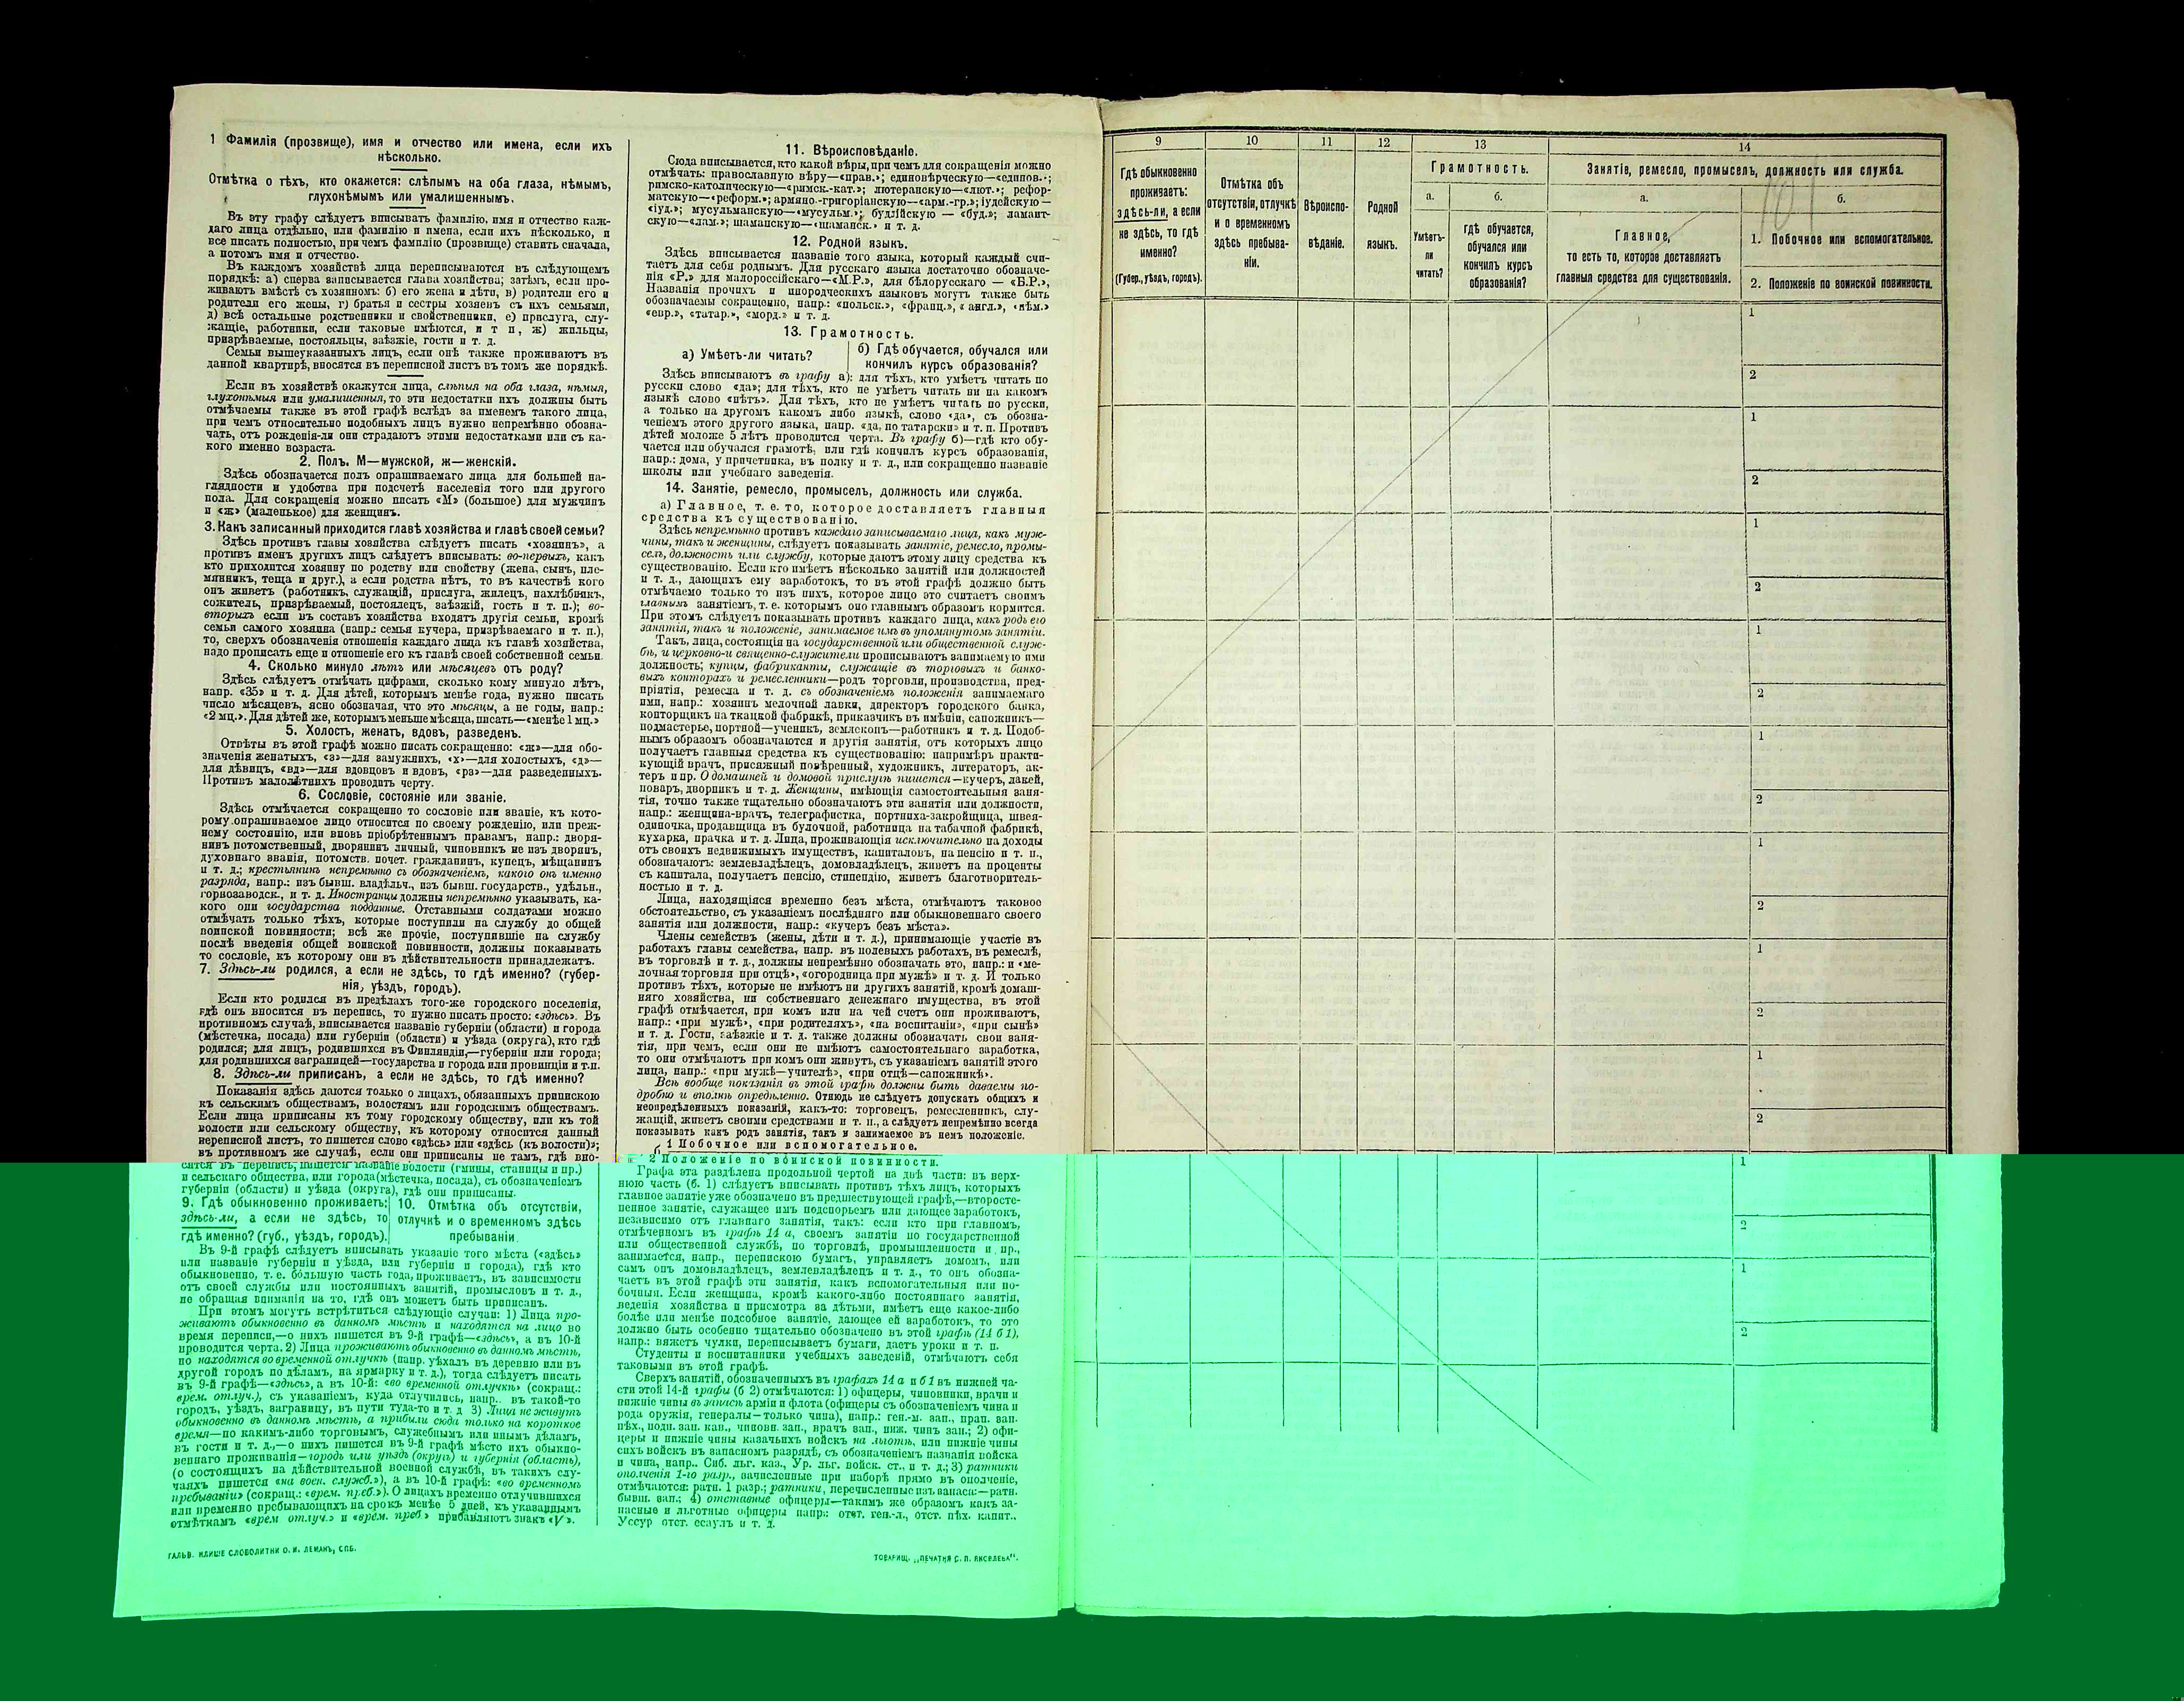 1 Фамилія (прозвище), имя и отчество или имена, если ихъ
нѣсколько.
Отмѣтка о тѣхъ, кто окажется: слѣпымъ на оба глаза, нѣмымъ,
глухонѣмымъ или умалишеннымъ.
Въ эту графу слѣдуетъ вписывать фамилію, имя и отчество каж-
даго лица отдѣльно, или фамилію и имена, если ихъ нѣсколько, и
все писать полностью, при чемъ фамилію (прозвище) ставить сначала,
а потомъ имя и отчество.
Въ каждомъ хозяйствѣ лица переписываются въ слѣдующемъ
порядкѣ: а) сперва записывается глава хозяйства; затѣмъ, если про-
живаютъ вмѣстѣ съ хозяиномъ: б) его жена и дѣти, в) родители его и
родители его жены, г) братья и сестры хозяевъ съ ихъ семьями,
д) всѣ остальные родственники и свойственники, е) прислуга, слу-
жащіе, работники, если таковые имѣются, и т п, ж) жильцы,
призрѣваемые, постояльцы, заѣзжіе, гости и т. д.
Семьи вышеуказанныхъ лицъ, если онѣ также проживаютъ въ
данной квартирѣ, вносятся въ переписной листъ въ томъ же порядкѣ.
Если въ хозяйствѣ окажутся лица, слѣпыя на оба глаза, нѣмыя,
глухонѣмыя или умалишенныя, то эти недостатки ихъ должны быть
отмѣчаемы также въ этой графѣ вслѣдъ за именемъ такого лица,
при чемъ относительно подобныхъ лицъ нужно непремѣнно обозна-
чать, отъ рожденія-ли они страдаютъ этими недостатками или съ ка-
кого именно возраста.
2. Полъ. М—мужской, ж—женскій.
Здѣсь обозначается полъ опрашиваемаго лица для большей на-
глядности и удобства при подсчетѣ населенія того или другого
пола. Для сокращенія можно писать «М» (большое) для мужчинъ
и «ж» (маленькое) для женщинъ.
3. Какъ записанный приходится главѣ хозяйства и главѣ своей семьи?
Здѣсь противъ главы хозяйства слѣдуетъ писать «хозяинъ», а
противъ именъ другихъ лицъ слѣдуетъ вписывать: во-первыхъ, какъ
кто приходится хозяину по родству или свойству (жена, сынъ, пле-
мянникъ, теща и друг.), а если родства нѣтъ, то въ качествѣ кого
онъ живетъ (работникъ, служащій, прислуга, жилецъ, нахлѣбникъ,
сожитель, призрѣваемый, постоялецъ, заѣзжій, гость и т. п.); во-
вторыхъ если въ составъ хозяйства входятъ другія семьи, кромѣ
семьи самого хозяина (напр.: семья кучера, призрѣваемаго и т. п.),
то, сверхъ обозначенія отношенія каждаго лица къ главѣ хозяйства,
надо прописать еще и отношеніе его къ главѣ своей собственной семьи.
4. Сколько минуло лѣтъ или мѣсяцевъ отъ роду?
Здѣсь слѣдуетъ отмѣчать цифрами, сколько кому минуло лѣтъ,
напр. «35» и т. д. Для дѣтей, которымъ менѣе года, нужно писать
число мѣсяцевъ, ясно обозначая, что это мѣсяцы, а не годы, напр.:
«2 мц.». Для дѣтей же, которымъ меньше мѣсяца, писать—«менѣе 1 мц.»
5. Холостъ, женатъ, вдовъ, разведенъ.
Отвѣты въ этой графѣ можно писать сокращенно: «ж»—для обо-
значенія женатыхъ, «з»—для замужнихъ, «х»—для холостыхъ, «д»—
для дѣвицъ, «вд»—для вдовцовъ и вдовъ, «рз»—для разведенныхъ.
Противъ малолѣтнихъ проводить черту.
6. Сословіе, состояніе или званіе.
Здѣсь отмѣчается сокращенно то сословіе или званіе, къ кото-
рому опрашиваемое лицо относится по своему рожденію, или преж-
нему состоянію, или вновь пріобрѣтеннымъ правамъ, напр.: дворя-
нинъ потомственный, дворянинъ личный, чиновникъ не изъ дворянъ,
духовнаго званія, потомств. почет. гражданинъ, купецъ, мѣщанинъ
и т. д.; крестьянинъ непремѣнно съ обозначеніемъ, какого онъ именно
разряда, напр.: изъ бывш. владѣльч., изъ бывш. государств., удѣльн.,
горнозаводск., и т. д. Иностранцы должны непремѣнно указывать, ка-
кого они государства подданные. Отставными солдатами можно
отмѣчать только тѣхъ, которые поступили на службу до общей
воинской повинности; всѣ же прочіе, поступившіе на службу
послѣ введенія общей воинской повинности, должны показывать
то сословіе, къ которому они въ дѣйствительности принадлежатъ.
7. Здѣсь-ли родился, а если не здѣсь, то гдѣ именно? (губер-
нія, уѣздъ, городъ).
Если кто родился въ предѣлахъ того-же городского поселенія,
гдѣ онъ вносится въ перепись, то нужно писать просто: «здѣсь». Въ
противномъ случаѣ, вписывается названіе губерніи (области) и города
(мѣстечка, посада) или губерніи (области) и уѣзда (округа), кто гдѣ
родился; для лицъ, родившихся въ Финляндіи,—губерніи или города;
для родившихся заграницей—государства и города или провинціи и т.п.
8. Здѣсь-ли приписанъ, а если не здѣсь, то гдѣ именно?
Показанія здѣсь даются только о лицахъ, обязанныхъ припискою
къ сельскимъ обществамъ, волостямъ или городскимъ обществамъ.
Если лица приписаны къ тому городскому обществу, или къ той
волости или сельскому обществу, къ которому относится данный
переписной листъ, то пишется слово «здѣсь» или «здѣсь (къ волости)»;
въ противномъ же случаѣ, если они приписаны не тамъ, гдѣ вно-
сятся въ перепись, пишется названіе волости (гмины, станицы и пр.)
и сельскаго общества, или города (мѣстечка, посада), съ обозначеніемъ
губерніи (области) и уѣзда (округа), гдѣ они приписаны.
9. Гдѣ обыкновенно проживаетъ:
здѣсь-ли, а если не здѣсь, то
гдѣ именно? (губ., уѣздъ, городъ).
10. Отмѣтка объ отсутствіи,
отлучкѣ и о временномъ здѣсь
пребываніи.
Въ 9-й графѣ слѣдуетъ вписывать указаніе того мѣста («здѣсь»
или названіе губерніи и уѣзда, или губерніи и города), гдѣ кто
обыкновенно, т. е. большую часть года, проживаетъ, въ зависимости
отъ своей службы или постоянныхъ занятій, промысловъ и т. д.,
не обращая вниманія на то, гдѣ онъ можетъ быть приписанъ.
При этомъ могутъ встрѣтиться слѣдующіе случаи: 1) Лица про-
живаютъ обыкновенно въ данномъ мѣстѣ и находятся на лицо во
время переписи,—о нихъ пишется въ 9-й графѣ—«здѣсь», а въ 10-й
проводится черта. 2) Лица проживаютъ обыкновенно въ данномъ мѣстѣ,
но находятся во временной отлучкѣ (напр. уѣхалъ въ деревню или въ
другой городъ по дѣламъ, на ярмарку и т. д.), тогда слѣдуетъ писать
въ 9-й графѣ—«здѣсь», а въ 10-й: «во временной отлучкѣ» (сокращ.:
врем. отлуч.), съ указаніемъ, куда отлучились, напр.. въ такой-то
городъ, уѣздъ, заграницу, въ пути туда-то и т. д 3) Лица не живутъ
обыкновенно въ данномъ мѣстѣ, а прибыли сюда только на короткое
время—по какимъ-либо торговымъ, служебнымъ или инымъ дѣламъ,
въ гости и т. д.,—о нихъ пишется въ 9-й графѣ мѣсто ихъ обыкно-
веннаго проживанія—городъ или уѣздъ (округъ) и губернія (область),
(о состоящихъ на дѣйствительной военной службѣ, въ такихъ слу-
чаяхъ пишется «на воен. служб.»), а въ 10-й графѣ: «во временномъ
пребываніи» (сокращ.: «врем. преб.»). О лицахъ временно отлучившихся
или временно пребывающихъ на срокъ менѣе 5 дней, къ указаннымъ
отмѣткамъ «врем отлуч.» и «врем. преб.» прибавляютъ знакъ «V».
ГАЛЬВ. КЛИШЕ СЛОВОЛИТНИ О. И. ЛЕМАНЪ, СПБ.
11. Вѣроисповѣданіе.
Сюда вписывается, кто какой вѣры, при чемъ для сокращенія можно
отмѣчать: православную вѣру—«прав.»; единовѣрческую—«единов.»;
римско-католическую—«римск.-кат.»; лютеранскую—«лют.»; рефор-
матскую—«реформ.»; армяно.-григоріанскую—«арм.-гр.»; іудейскую—
«іуд.»; мусульманскую—«мусульм.»; буддійскую — «буд.»; ламаит-
скую—«лам.»; шаманскую—«шаманск.» и т. д.
12. Родной языкъ.
Здѣсь вписывается названіе того языка, который каждый счи-
таетъ для себя роднымъ. Для русскаго языка достаточно обозначе-
нія «Р.» для малороссійскаго—«М.Р.», для бѣлорусскаго — «Б.Р.»,
Названія прочихъ и инородческихъ языковъ могутъ также быть
обозначаемы сокращенно, напр.: «польск.», «франц.», «англ.», «нѣм.»
«евр.», «татар.», «морд.» и т. д.
13. Грамотность.
а) Умѣетъ-ли читать?
б) Гдѣ обучается, обучался или
кончилъ курсъ образованія?
Здѣсь вписываютъ въ графу а): для тѣхъ, кто умѣетъ читать по
русски слово «да»; для тѣхъ, кто не умѣетъ читать ни на какомъ
языкѣ слово «нѣтъ». Для тѣхъ, кто не умѣетъ читать по русски,
а только на другомъ какомъ либо языкѣ, слово «да», съ обозна-
ченіемъ этого другого языка, напр. «да, по татарски» и т. п. Противъ
дѣтей моложе 5 лѣтъ проводится черта. Въ графу б)—гдѣ кто обу-
чается или обучался грамотѣ, или гдѣ кончилъ курсъ образованія,
напр.: дома, у причетника, въ полку и т. д., или сокращенно названіе
школы или учебнаго заведенія.
14. Занятіе, ремесло, промыселъ, должность или служба.
а) Главное, т. е. то, которое доставляетъ главныя
средства къ существованію.
Здѣсь непремѣнно противъ каждаго записываемаго лица, какъ муж-
чины, такъ и женщины, слѣдуетъ показывать занятіе, ремесло, промы-
селъ, должность или службу, которые даютъ этому лицу средства къ
существованію. Если кто имѣетъ нѣсколько занятій или должностей
и т. д., дающихъ ему заработокъ, то въ этой графѣ должно быть
отмѣчаемо только то изъ нихъ, которое лицо это считаетъ своимъ
главнымъ занятіемъ, т. е. которымъ оно главнымъ образомъ кормится.
При этомъ слѣдуетъ показывать противъ каждаго лица, какъ родъ его
занятія, такъ и положеніе, занимаемое имъ въ упомянутомъ занятіи.
Такъ, лица, состоящія на государственной или общественной служ-
бѣ, и церковно-и священно-служители прописываютъ занимаемую ими
должность; купцы, фабриканты, служащіе въ торговыхъ и банко-
выхъ конторахъ и ремесленники—родъ торговли, производства, пред-
пріятія, ремесла и т. д. съ обозначеніемъ положенія занимаемаго
ими, напр.: хозяинъ мелочной лавки, директоръ городского банка,
конторщикъ на ткацкой фабрикѣ, приказчикъ въ имѣніи, сапожникъ—
подмастерье, портной—ученикъ, землекопъ—работникъ и т. д. Подоб-
нымъ образомъ обозначаются и другія занятія, отъ которыхъ лицо
получаетъ главныя средства къ существованію: напримѣръ практи-
кующій врачъ, присяжный повѣренный, художникъ, литераторъ, ак-
теръ и пр. О домашней и домовой прислугѣ пишется—кучеръ, лакей,
поваръ, дворникъ и т. д. Женщины, имѣющія самостоятельныя заня-
тія, точно также тщательно обозначаютъ эти занятія или должности,
напр.: женщина-врачъ, телеграфистка, портниха-закройщица, швея-
одиночка, продавщица въ булочной, работница на табачной фабрикѣ,
кухарка, прачка и т. д. Лица, проживающія исключительно на доходы
отъ своихъ недвижимыхъ имуществъ, капиталовъ, на пенсію и т. п.,
обозначаютъ: землевладѣлецъ, домовладѣлецъ, живетъ на проценты
съ капитала, получаетъ пенсію, стипендію, живетъ благотворитель-
ностью и т. д.
Лица, находящіяся временно безъ мѣста, отмѣчаютъ таковое
обстоятельство, съ указаніемъ послѣдняго или обыкновеннаго своего
занятія или должности, напр.: «кучеръ безъ мѣста».
Члены семействъ (жены, дѣти и т. д.), принимающіе участіе въ
работахъ главы семейства, напр. въ полевыхъ работахъ, въ ремеслѣ,
въ торговлѣ и т. д., должны непремѣнно обозначать это, напр.: и «ме-
лочная торговля при отцѣ», «огородница при мужѣ» и т. д. И только
противъ тѣхъ, которые не имѣютъ ни другихъ занятій, кромѣ домаш-
няго хозяйства, ни собственнаго денежнаго имущества, въ этой
графѣ отмѣчается, при комъ или на чей счетъ они проживаютъ,
напр.: «при мужѣ», «при родителяхъ», «на воспитаніи», «при сынѣ»
и т. д. Гости, заѣзжіе и т. д. также должны обозначать свои заня-
тія, при чемъ, если они не имѣютъ самостоятельнаго заработка,
то они отмѣчаютъ при комъ они живутъ, съ указаніемъ занятій этого
лица, напр.: «при мужѣ—учителѣ», «при отцѣ—сапожникѣ».
Всѣ вообще показанія въ этой графѣ должны быть даваемы по-
дробно и вполнѣ опредѣленно. Отнюдь не слѣдуетъ допускать общихъ и
неопредѣленныхъ показаній, какъ-то: торговецъ, ремесленникъ, слу-
жащій, живетъ своими средствами и т. п., а слѣдуетъ непремѣнно всегда
показывать какъ родъ занятія, такъ и занимаемое въ немъ положеніе.
1 Побочное или вспомогательное.
2 Положеніе по воинской повинности.
Графа эта раздѣлена продольной чертой на двѣ части: въ верх-
нюю часть (б. 1) слѣдуетъ вписывать противъ тѣхъ лицъ, которыхъ
главное занятіе уже обозначено въ предшествующей графѣ,—второсте-
пенное занятіе, служащее имъ подспорьемъ или дающее заработокъ,
независимо отъ главнаго занятія, такъ: если кто при главномъ,
отмѣченномъ въ графѣ 14 а, своемъ занятіи по государственной
или общественной службѣ, по торговлѣ, промышленности и пр.,
занимается, напр., перепискою бумагъ, управляетъ домомъ, или
самъ онъ домовладѣлецъ, землевладѣлецъ и т. д., то онъ обозна-
чаетъ въ этой графѣ эти занятія, какъ вспомогательныя или по-
бочныя. Если женщина, кромѣ какого-либо постояннаго занятія,
веденія хозяйства и присмотра за дѣтьми, имѣетъ еще какое-либо
болѣе или менѣе подсобное занятіе, дающее ей заработокъ, то это
должно быть особенно тщательно обозначено въ этой графѣ (14 б 1),
напр.: вяжетъ чулки, переписываетъ бумаги, даетъ уроки и т. п.
Студенты и воспитанники учебныхъ заведеній, отмѣчаютъ себя
таковыми въ этой графѣ.
Сверхъ занятій, обозначенныхъ въ графахъ 14 а и б 1 въ нижней ча-
сти этой 14-й графы (б 2) отмѣчаются: 1) офицеры, чиновники, врачи и
нижніе чины въ запасѣ арміи и флота (офицеры съ обозначеніемъ чина и
рода оружія, генералы—только чина), напр.: ген.-м. зап., прап. зап.
пѣх., подп. зап. кав., чиновн. зап., врачъ зап., ниж. чинъ зап.; 2) офи-
церы и нижніе чины казачьихъ войскъ на льготѣ, или нижніе чины
сихъ войскъ въ запасномъ разрядѣ, съ обозначеніемъ названія войска
и чина, напр.. Сиб. льг. каз., Ур. льг. войск. ст., и т. д.; 3) ратники
ополченія 1-го разр., зачисленные при наборѣ прямо въ ополченіе,
отмѣчаются: ратн. 1 разр.; ратники, перечисленные изъ запаса:—ратн.
бывш. зап.; 4) отставные офицеры—такимъ же образомъ какъ за-
пасные и льготные офицеры напр.: отст. ген.-л., отст. пѣх. капит.,
Уссур отст. есаулъ и т. д.
ТОВАРИЩ. „ПЕЧАТНЯ С. П. ЯКОВЛЕВА“.
9
10
11
12
13
14
Гдѣ обыкновенно
проживаетъ:
здѣсь-ли, а если
не здѣсь, то гдѣ
именно?
(Губер., уѣздъ, городъ).
Отмѣтка объ
отсутствіи, отлучкѣ
и о временномъ
здѣсь пребыва-
ніи.
Вѣроиспо-
вѣданіе.
Родной
языкъ.
Грамотность.
а.
Умѣетъ-
ли
читать?
б.
гдѣ обучается,
обучался или
кончилъ курсъ
образованія?
Занятіе, ремесло, промыселъ, должность или служба.
а.
Главное,
то есть то, которое доставляетъ
главныя средства для существованія.
б.
1. Побочное или вспомогательное.
2. Положеніе по воинской повинности.
1
2
1
2
1
2
1
2
1
2
1
2
1
2
1
2
1
2
1
2